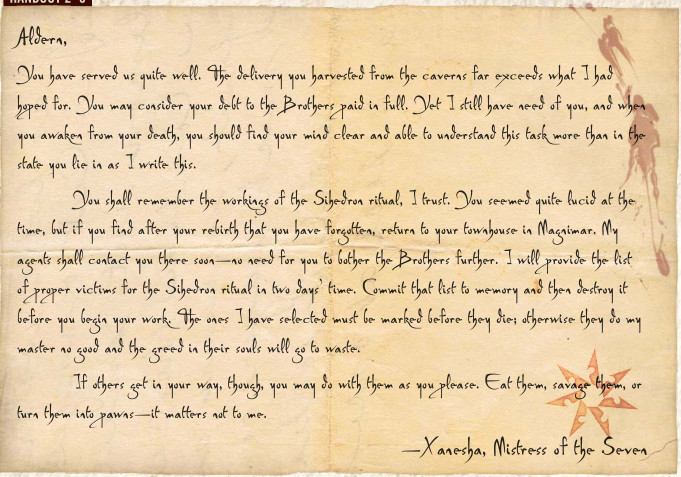 HANDOUT 2–3
Aldern,
You have served us quite well. The delivery you harvested from the caverns far exceeds what I had
hoped for. You may consider your debt to the Brothers paid in full. Yet I still have need of you, and when
you awaken from your death, you should find your mind clear and able to understand this task more than in the
state you lie in as I write this.
You shall remember the workings of the Sihedron ritual, I trust. You seemed quite lucid at the
time, but if you find after your rebirth that you have forgotten, return to your townhouse in Magnimar. My
agents shall contact you there soon—no need for you to bother the Brothers further. I will provide the list
of proper victims for the Sihedron ritual in two days' time. Commit that list to memory and then destroy it
before you begin your work. The ones I have selected must be marked before they die; otherwise they do my
master no good and the greed in their souls will go to waste.
If others get in your way, though, you may do with them as you please. Eat them, savage them, or
turn them into pawns—it matters not to me.
—Xanesha, Mistress of the Seven